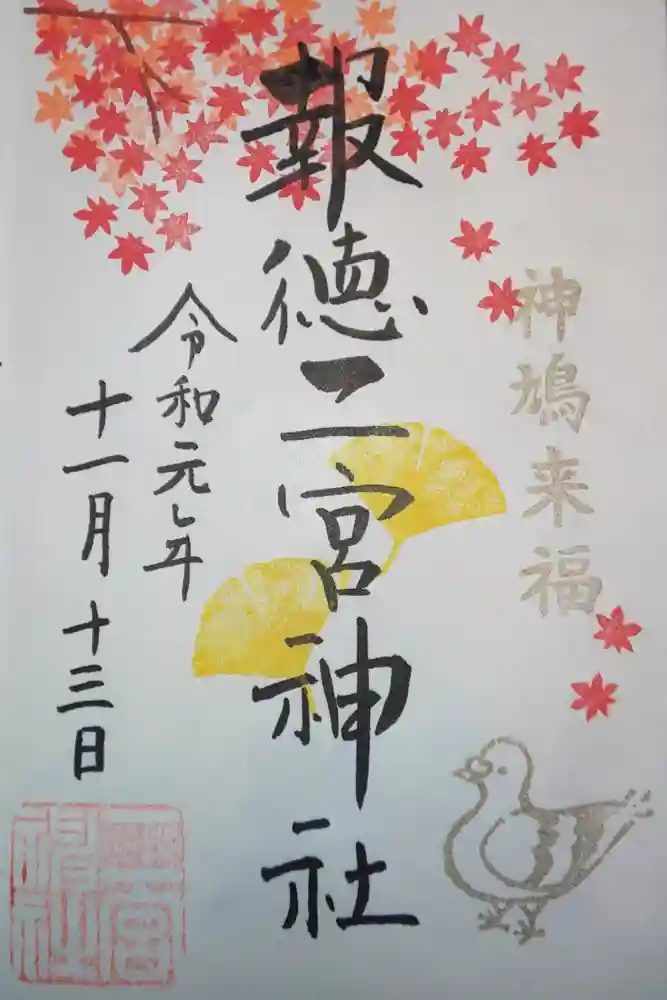 神鳩来福
報徳二宮神社
令和元年
十一月十三日
二宮神社